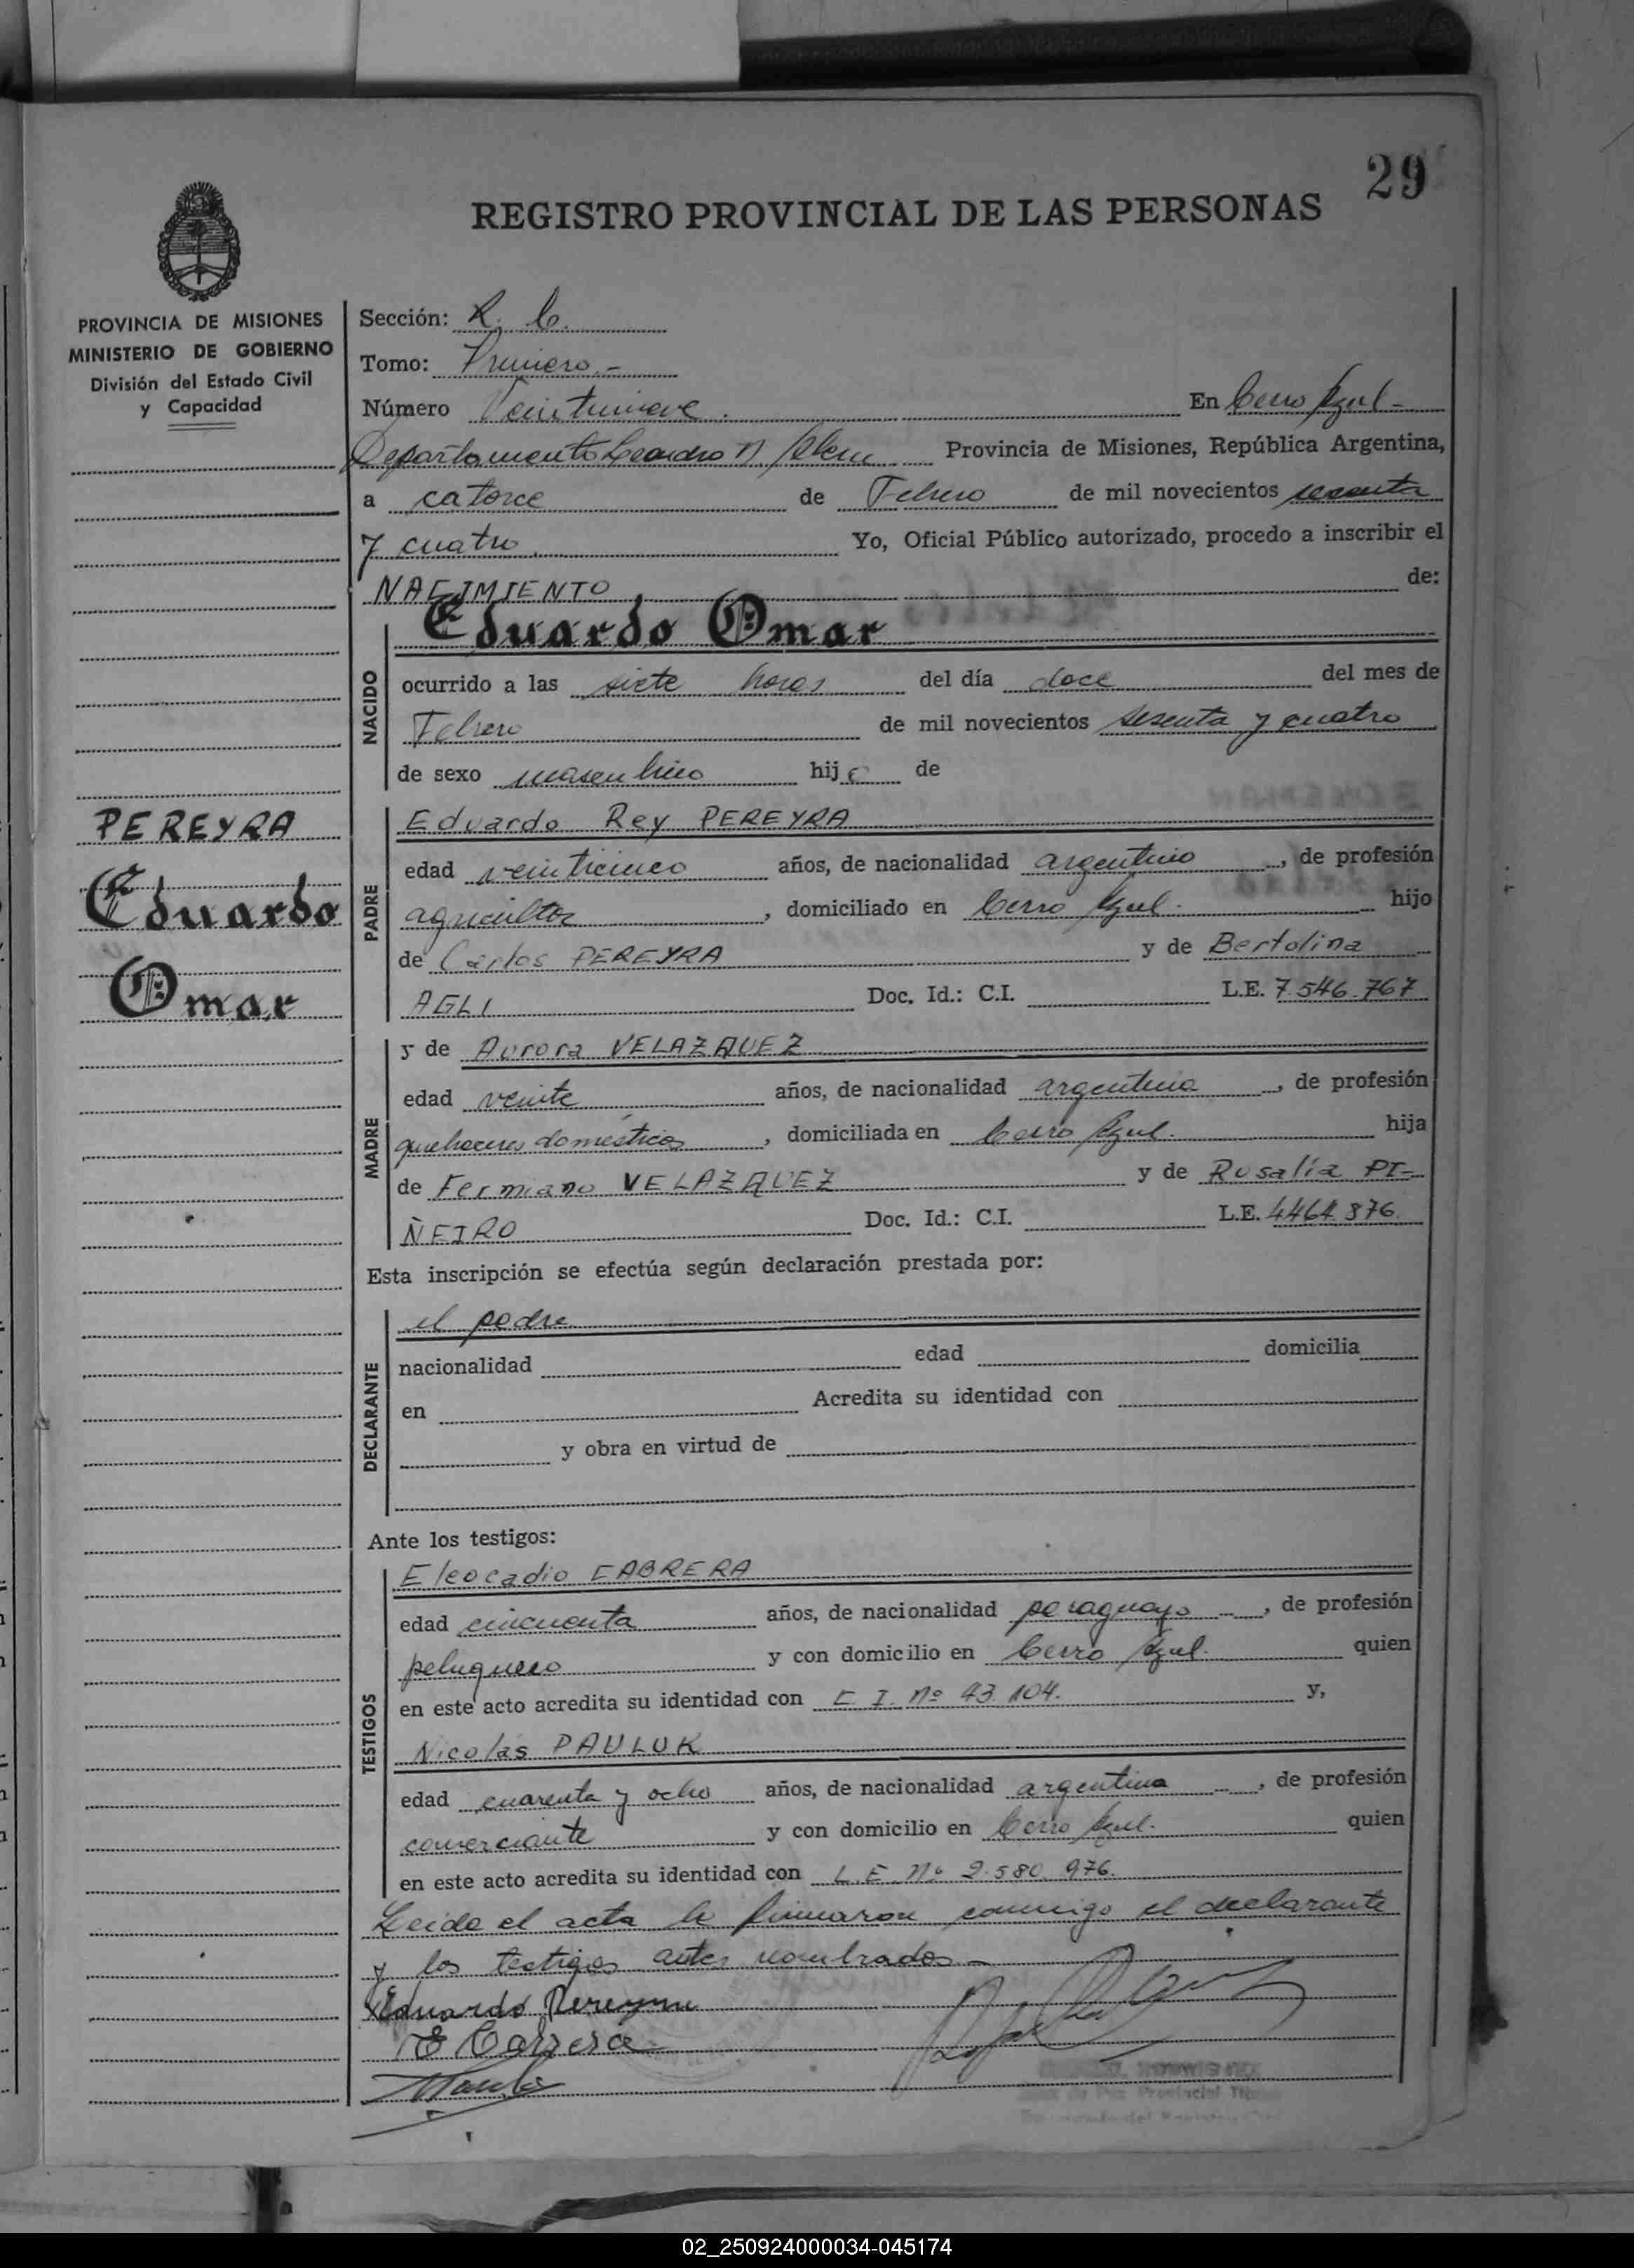 29
REGISTRO PROVINCIAL DE LAS PERSONAS
PROVINCIA DE MISIONES
MINISTERIO DE GOBIERNO
División del Estado Civil
y Capacidad
PEREYRA
Eduardo
Omar
Sección: R. C.
Tomo: Primero.-
Número Veintinueve. En Cerro Azul-
Departamento Leandro N Alem Provincia de Misiones, República Argentina,
a catorce de Febrero de mil novecientos sesenta
y cuatro Yo, Oficial Público autorizado, procedo a inscribir el
NACIMIENTO de:
Eduardo Omar
NACIDO
ocurrido a las siete horas del día doce del mes de
Febrero de mil novecientos sesenta y cuatro
de sexo masculino hijo de
PADRE
Eduardo Rey PEREYRA
edad veinticinco años, de nacionalidad argentino, de profesión
agricultor, domiciliado en Cerro Azul. hijo
de Carlos PEREYRA y de Bertolina
AGLI Doc. Id.: C.I. L.E. 7.546.767
MADRE
y de Aurora VELAZQUEZ
edad veinte años, de nacionalidad argentina, de profesión
quehaceres domésticos, domiciliada en Cerro Azul. hija
de Fermiano VELAZQUEZ y de Rosalía PI-
ÑEIRO Doc. Id.: C.I. L.E. 4464.876.
Esta inscripción se efectúa según declaración prestada por:
DECLARANTE
el padre
nacionalidad edad domicilia
en Acredita su identidad con
y obra en virtud de
Ante los testigos:
TESTIGOS
Eleocadio CABRERA
edad cincuenta años, de nacionalidad paraguayo, de profesión
peluquero y con domicilio en Cerro Azul. quien
en este acto acredita su identidad con C. I. Nº 43.104. y,
Nicolás PAULUK
edad cuarenta y ocho años, de nacionalidad argentina, de profesión
comerciante y con domicilio en Cerro Azul. quien
en este acto acredita su identidad con L.E. Nº 2.580.976.
Leida el acta la firmaron conmigo el declarante
y los testigos antes nombrados.-
Eduardo Pereyra
E Cabrera
02_250924000034-045174